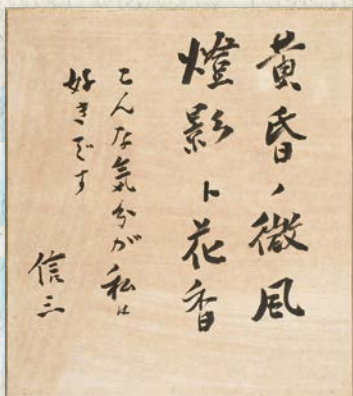 黄昏ノ微風
燈影ト花香
こんな気分が私は
好きです
信三